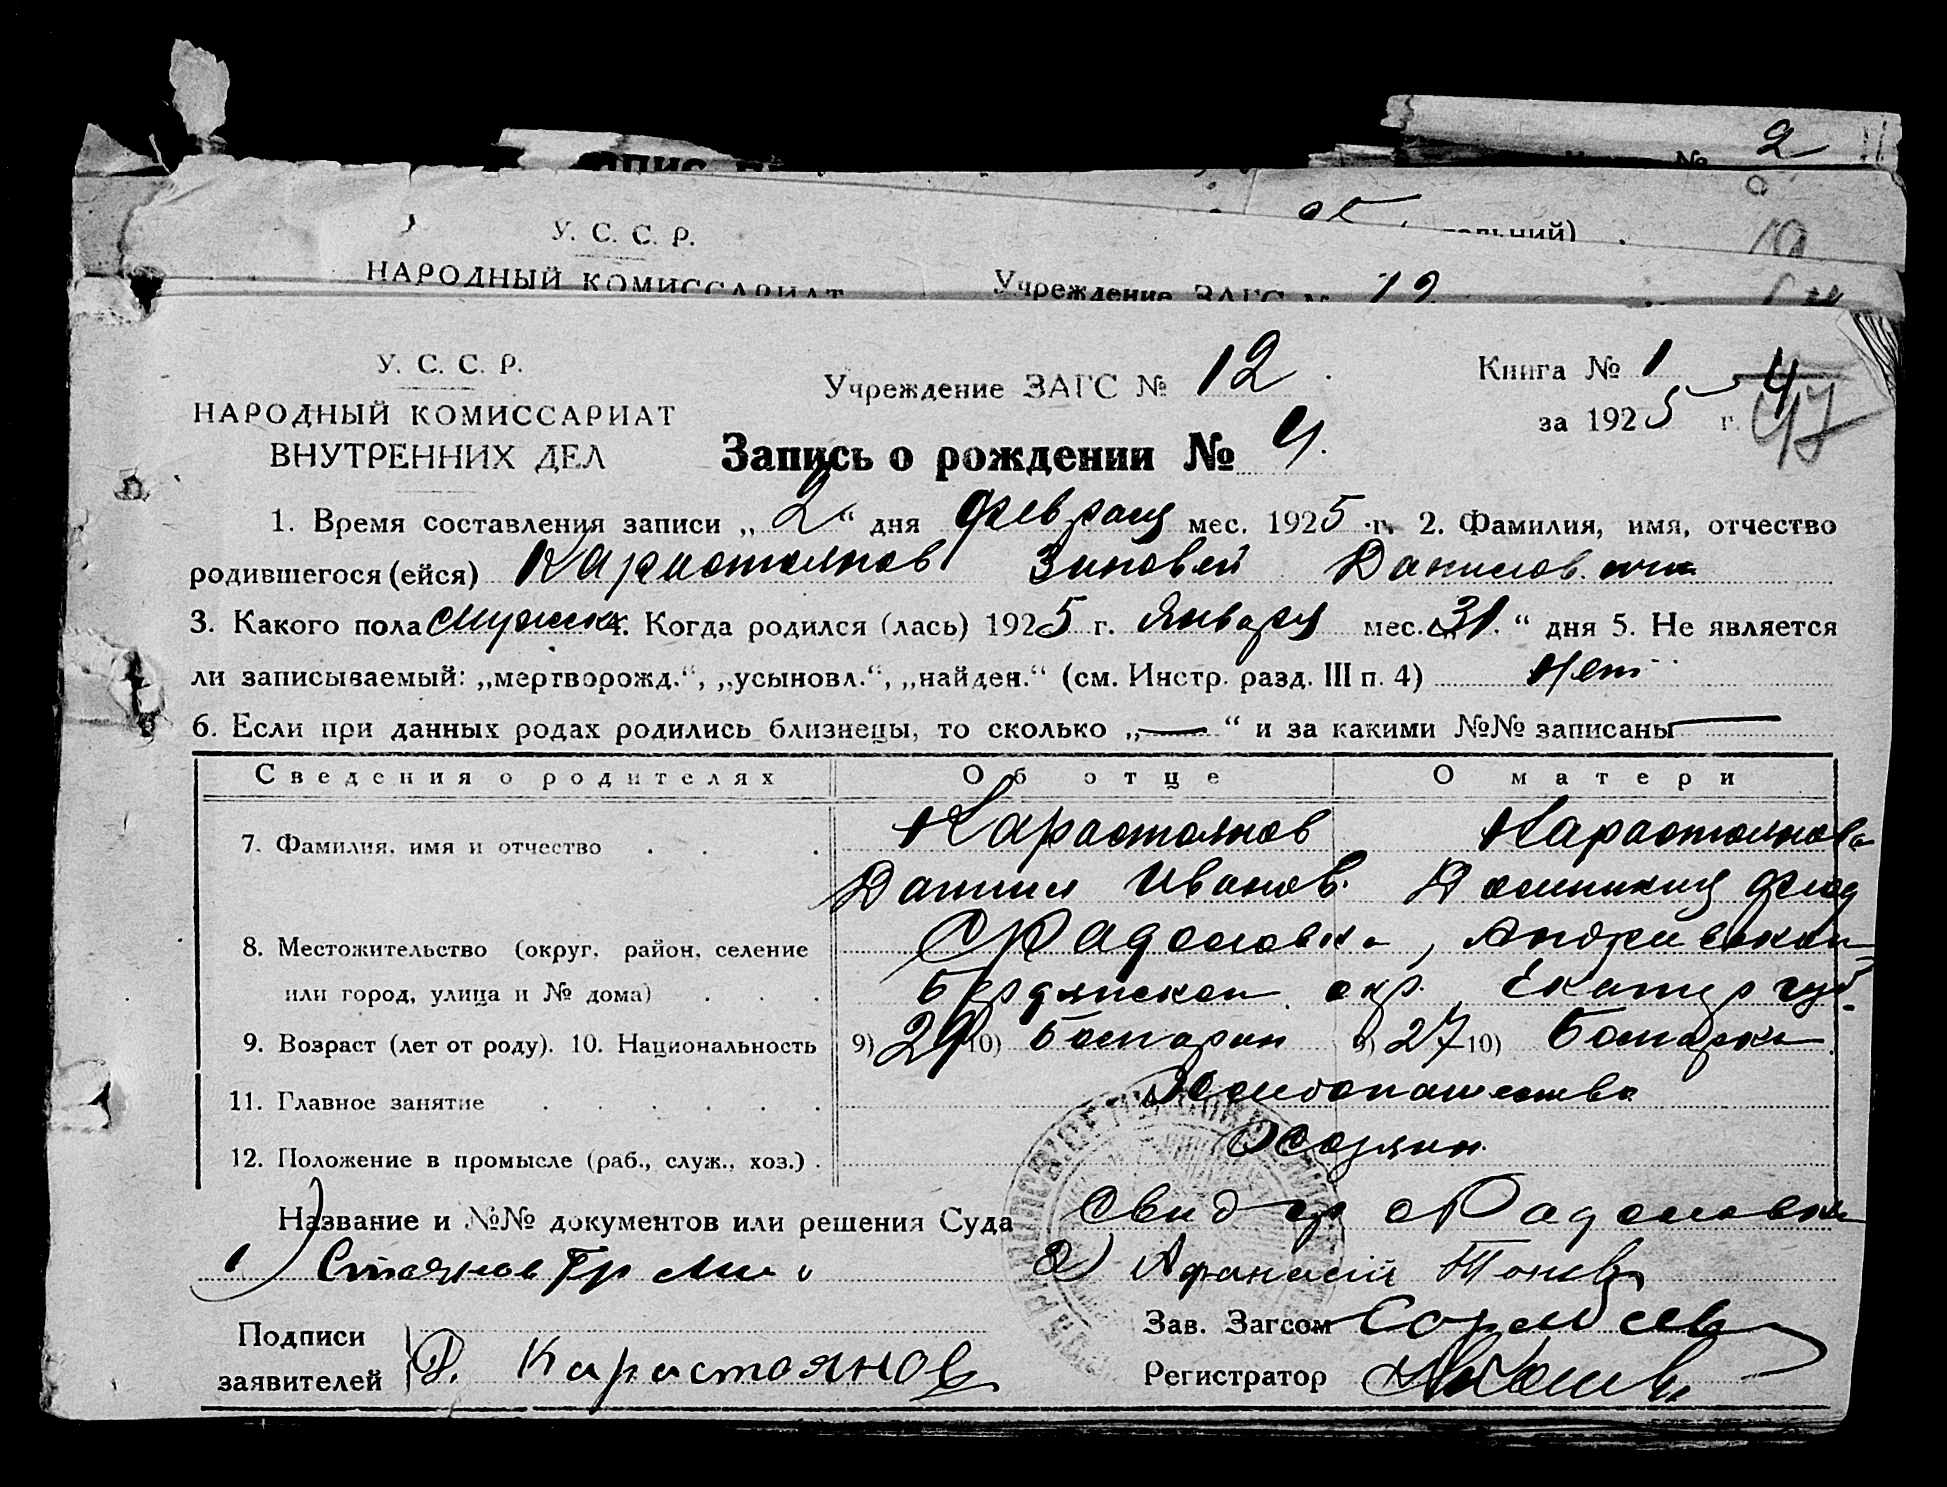 № 2
тельний)
19
У. С. С. Р.
НАРОДНЫЙ КОМИССАРИАТ
Учреждение ЗАГС № 12
У. С. С. Р.
НАРОДНЫЙ КОМИССАРИАТ
ВНУТРЕННИХ ДЕЛ
Учреждение ЗАГС № 12
Книга № 1
за 1925 г.
4
47
Запись о рождении № 4.
1. Время составления записи „2“ дня февраля мес. 1925 г. 2. Фамилия, имя, отчество
родившегося (ейся) Карастоянов Зиновей Данилович
3. Какого пола мужск. 4. Когда родился (лась) 1925 г. Января мес. „31.“ дня 5. Не является
ли записываемый: „мертворожд.“, „усыновл.“, „найден.“ (см. Инстр. разд. III п. 4) Нет
6. Если при данных родах родились близнецы, то сколько „—“ и за какими №№ записаны —
Сведения о родителях Об отце О матери
7. Фамилия, имя и отчество . . . Карастоянов Карастоянова
Данил Иванов. Доминикия Фиод
8. Местожительство (округ, район, селение С Радоловка, Андриевской
или город, улица и № дома) . . . Бердянской окр. Екатер губ.
9. Возраст (лет от роду). 10. Национальность 9) 29 10) Болгарин 9) 27 10) Болгарка
11. Главное занятие . . . . . . Хлебопашество
12. Положение в промысле (раб., служ., хоз.) . Хозяин
Название и №№ документов или решения Суда Свид гр с Радоловки
1) Стоянов Гр 2) Афанасий Тонев
Подписи
заявителей Д. Карастоянов
Зав. Загсом
Регистратор